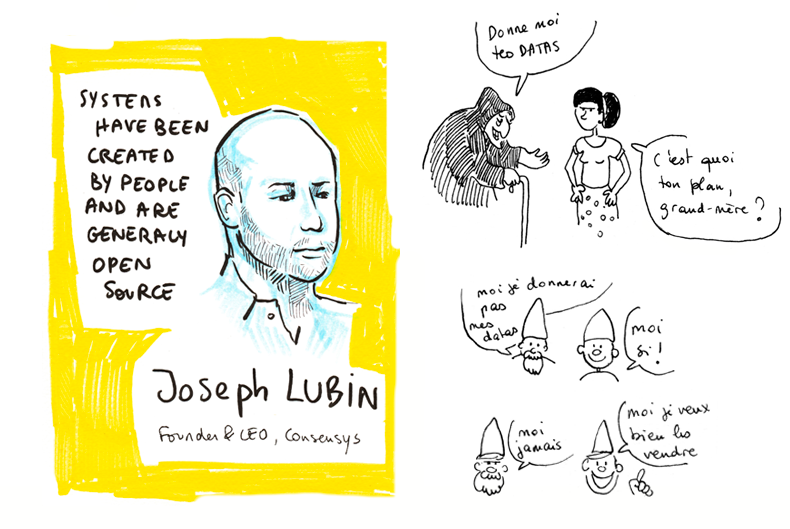 SYSTEMS
HAVE BEEN
CREATED
BY PEOPLE
AND ARE
GENERALY
OPEN
SOURCE
Joseph LUBIN
Founder & CEO, Consensys
Donne moi
teo DATAS
C'est quoi
ton plan,
grand-mère ?
moi je donnerai
pas
mes
datas
moi
si !
moi
jamais
moi je veux
bien les
vendre